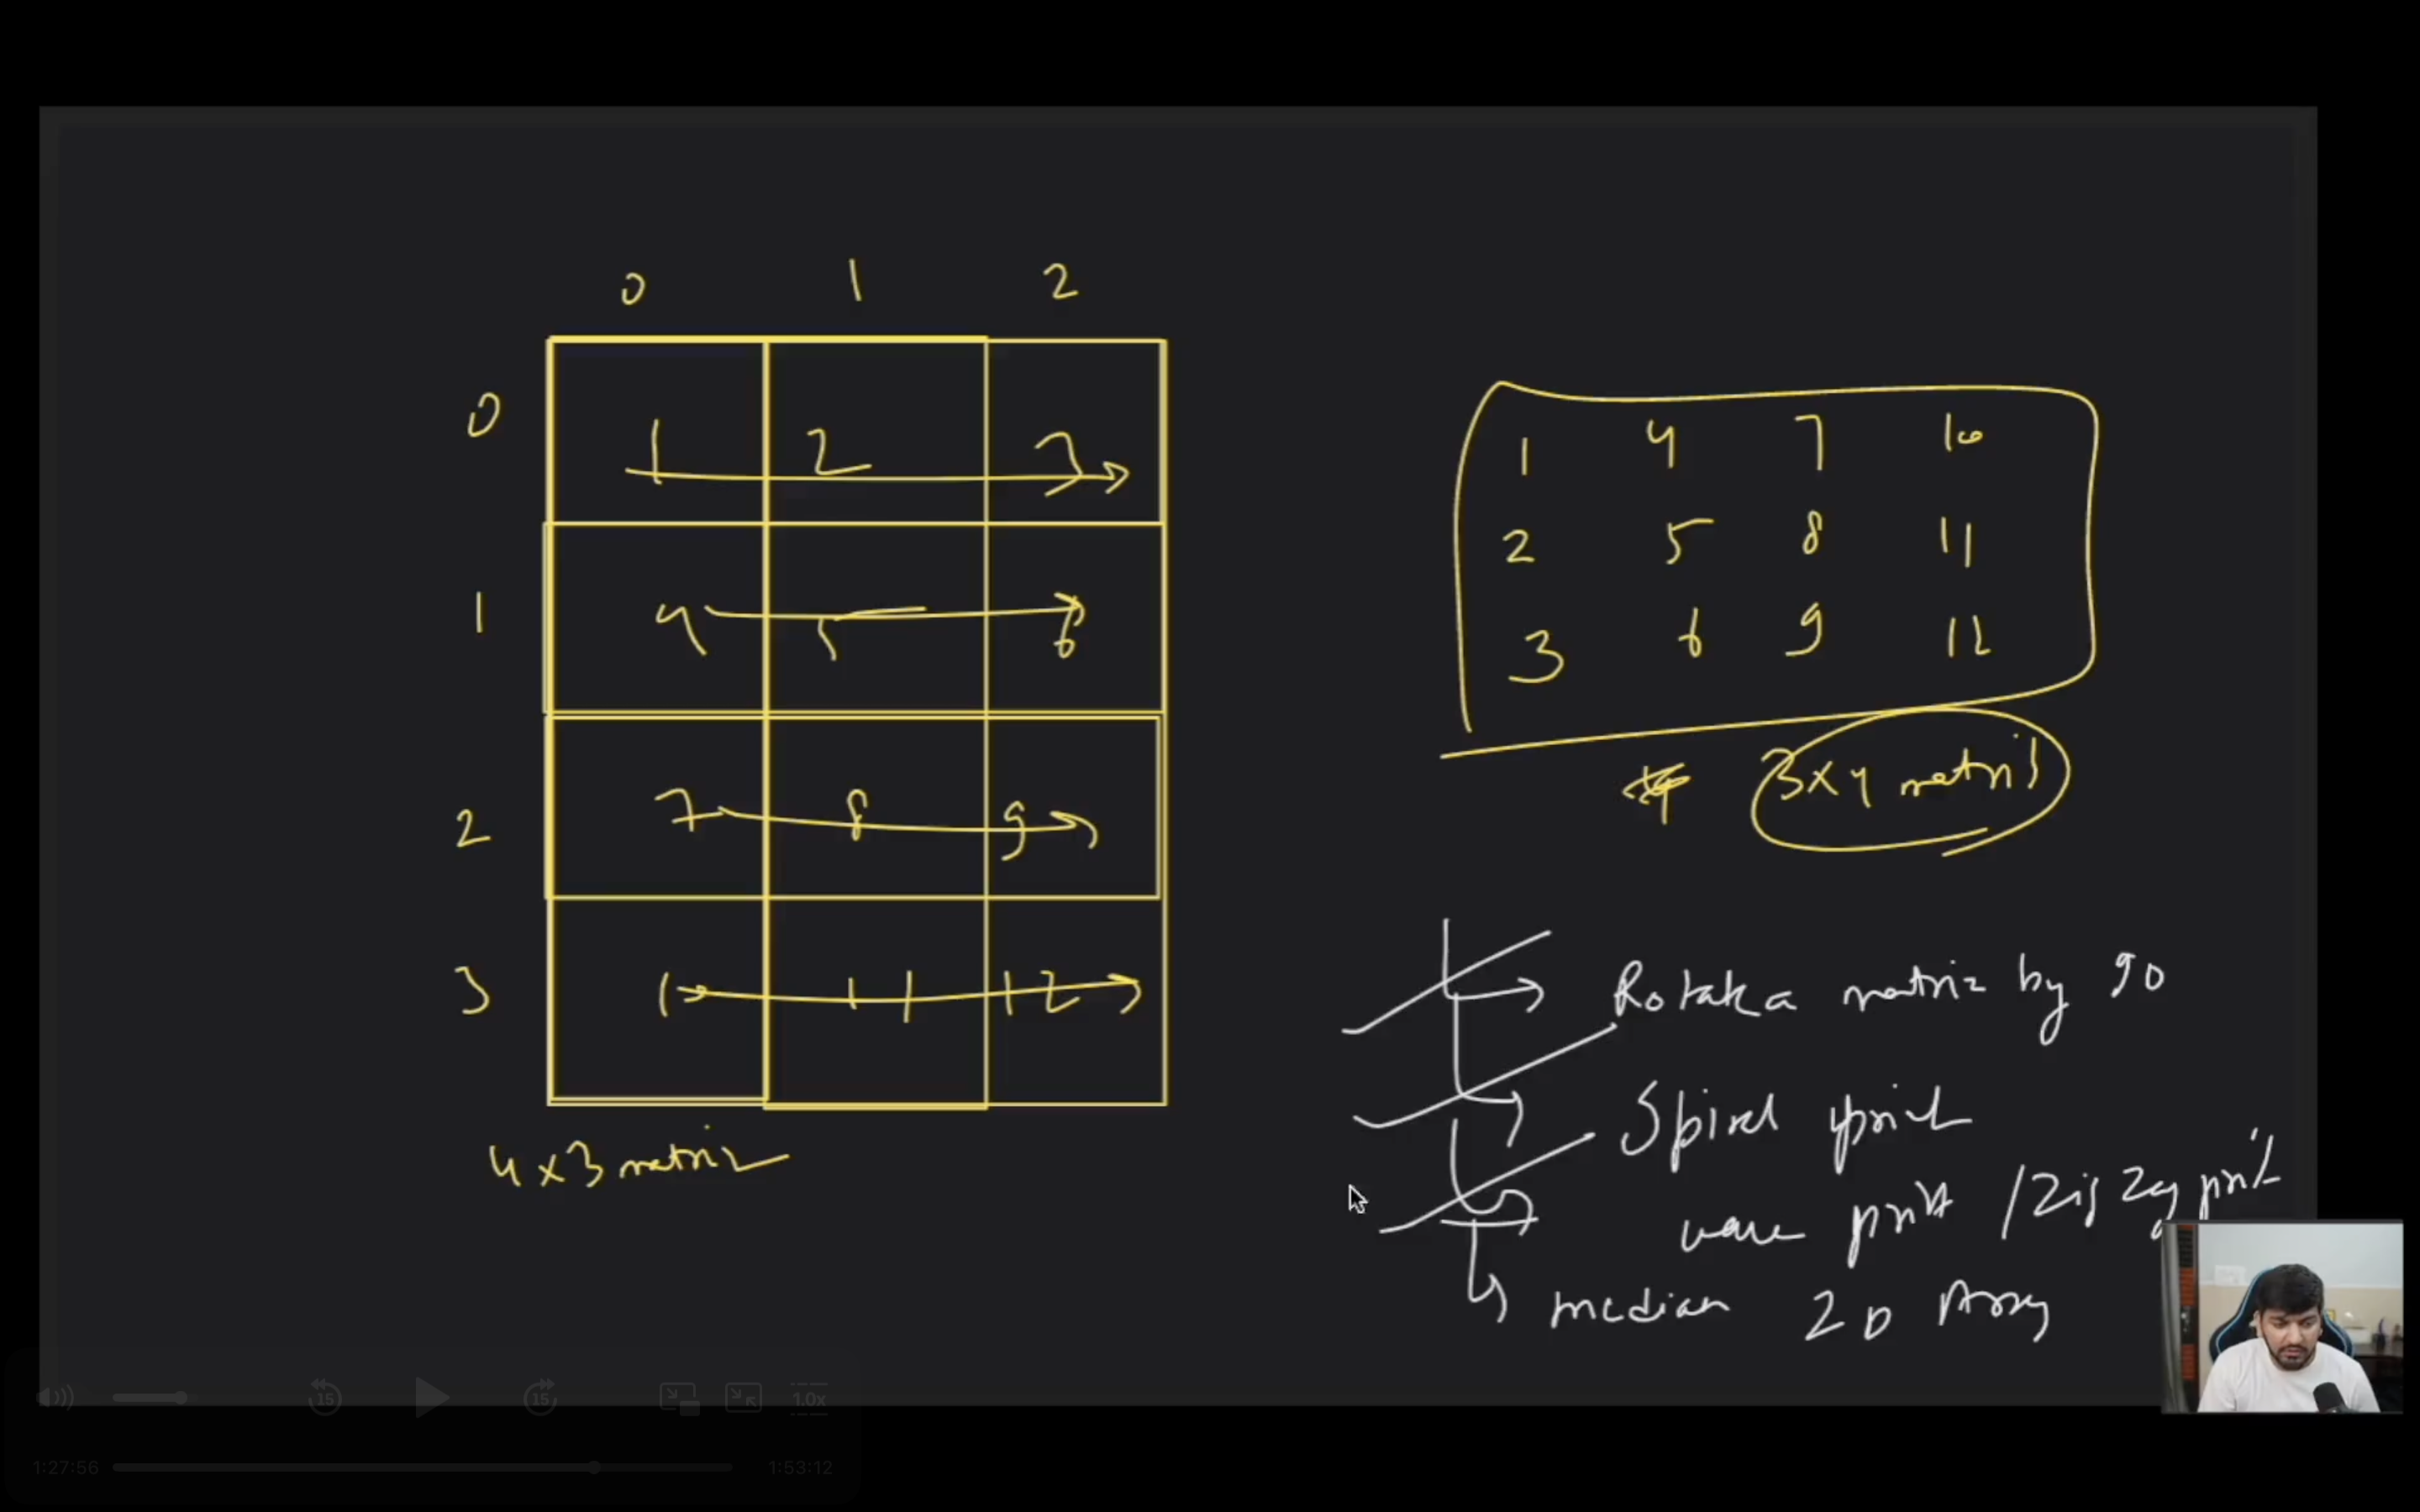 0 1 2
0 1 2 3
1 4 5 6
2 7 8 9
3 10 11 12
4 x 3 matrix
1 4 7 10
2 5 8 11
3 6 9 12
3 x 4 matrix
Rotate a matrix by 90
Spiral print
wave print / Zig Zag print
median 2D Array
15 15 1.0x
1:27:56 1:53:12